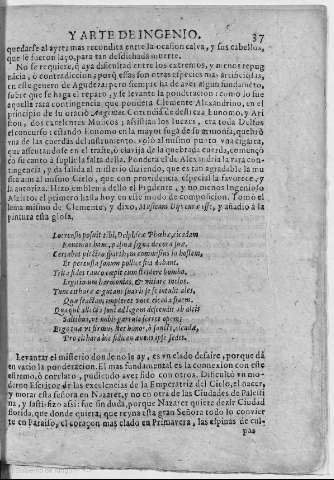 Y ARTE DE INGENIO. 37
quedarse al ayre; mas recondita entre la ocasion calva, y sus cabellos,
que se dieron laço, para tan desdichada muerte.
No se requiere, q̃ aya dificultad entre los extremos, y menos repug
nãcia, ò contradiccion; porq̃ essas son otras especies mas artificiosas,
en este genero de Agudeza: pero siempre ha de aver algun fundamẽto,
sobre que se haga el reparo, y se levante la ponderacion como lo fue
aquella rara contingencia que pondera Clemente Alexandrino, en el
principio de su oracion
do contienda Eunomo, y Ari-
ton, dos excelentes Musicos; assistian los Iuezes, era toda Delfos
el concurso: estando Eunomo en la mayor fuga de su armonia, quebrò
una de las cuerdas del instrumento, voló al mismo punto una cigarra,
que assentandose en el traste, ò clavija de la quebrada cuerda, començò
co su canto à suplir la falta della. Pondera el de Alexandria la rara con-
tingencia, y da salida al misterio diziendo, que es tan agradable la mu
sica aun al mismo Cielo, que con providencia especial la favorece, y
la autoriza. Hizo emblema dello el Prudente, y no menos Ingenioso
Alciato el primero hasta oy en este modo de composicion. Tomó el
lema mismo de Clemente, y dixo, Musicam Dijs curæ esse, y añadió a la
pintura esta glosa.
Locrensis posuit tibi, Delphice Phœbe, cicadam
Eunomus hanc, palmæ signa decora suæ.
Certabat plectro Sparthyn commissus in hostem,
Et percussa sonum pollice fila dabant.
Trita fides rauco cœpit cum stridere bombo,
Legitimum harmonias, & vitiare melos.
Tum citharæ argutans suavis se se intulit ales,
Quæ fractam, impleret voce cicada fidem.
Quæque allecta soni ad legem descendit ab altis
Saltibus, ut nobis garrula ferret opem.
Ergo tuæ ut firmus stet honos, ò sancte, cicadæ,
Pro cithara hic fidicen æneus ipsa sedet.
Levantar el misterio donde no le ay, es un elado desaire, porque dá
en vacio la ponderacion. El mas fundamental es la connexion con este
estremo, ò correlato, pudiendo aver sido con otros. Dificultó un mo-
derno Escritor de las excelencias de la Emperatriz del Cielo, el nacer,
y morar esta señora en Nazaret, y no en otra de las Ciudades de Palesti
na, y satisfizo assi: fue sin duda, porque Nazaret quiere dezir Ciudad
florida, que donde quiera, que reyna esta gran Señora todo lo convier
te en Paraiso, el coraçon mas elado en Primavera, las espinas de cul-
pas